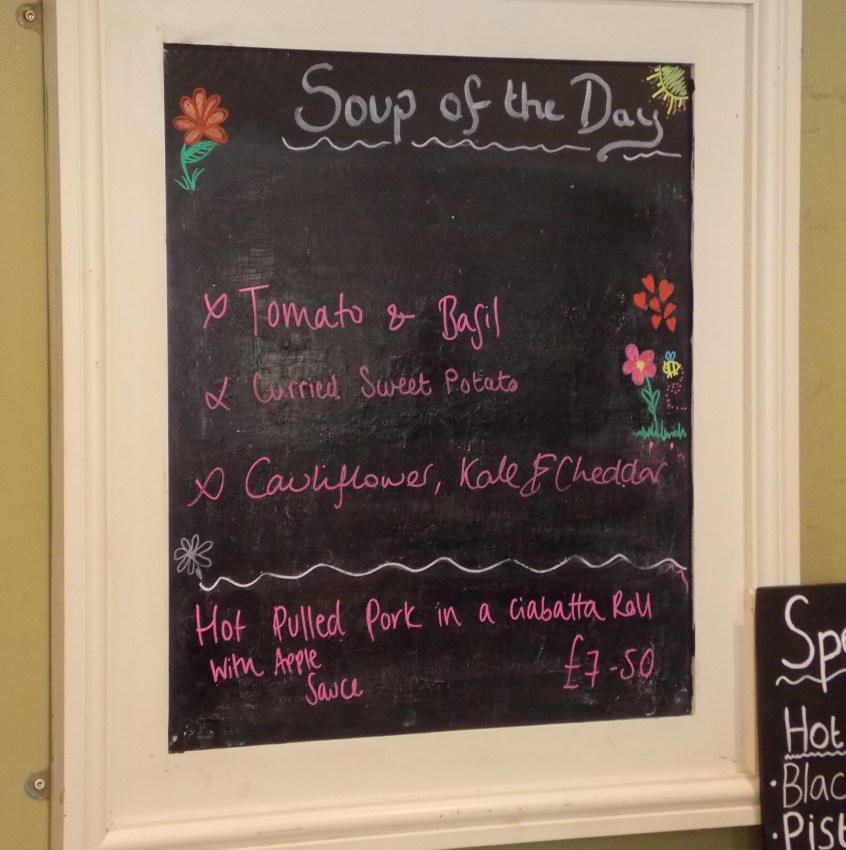 Soup of the Day
Tomato & Basil
Curried Sweet Potato
Cauliflower, Kale & Cheddar
Hot Pulled Pork in a Ciabatta Roll
with Apple
Sauce £7-50
Hot